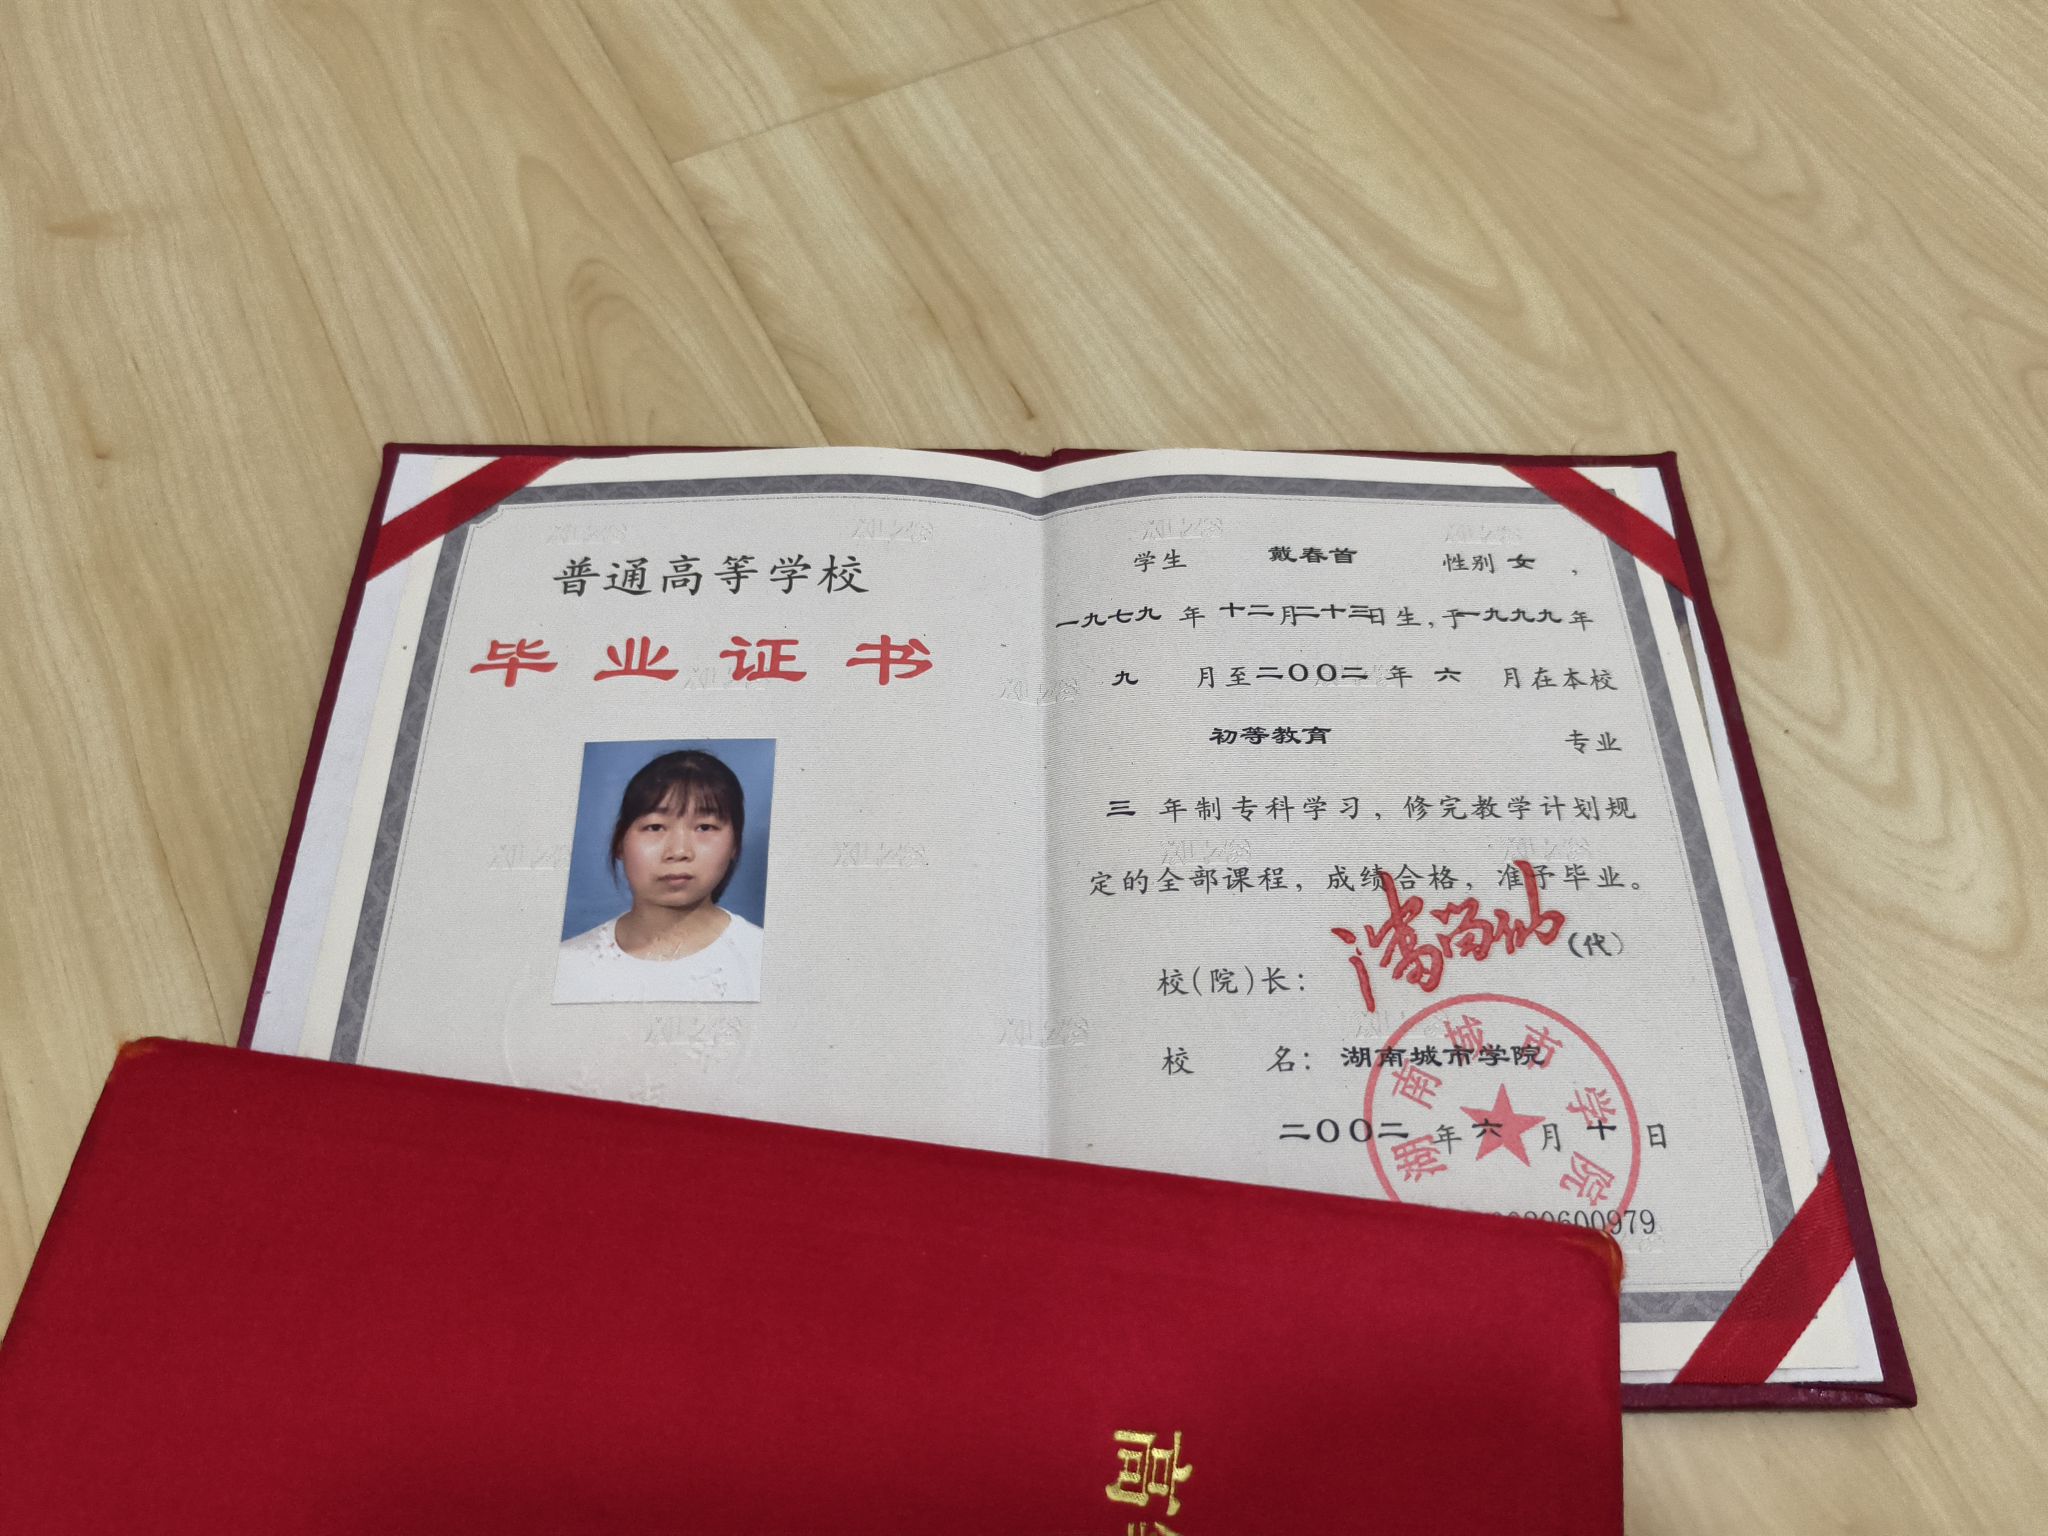 普通高等学校
毕业证书
学生 戴春首 性别 女 ,
一九七九 年 十二 月二十三日 生,于一九九九年
九 月至二〇〇二 年 六 月在本校
初等教育 专业
三 年制专科学习,修完教学计划规
定的全部课程,成绩合格,准予毕业。
校(院)长: (代)
校 名: 湖南城市学院
湖南城市学院
二〇〇二 年 六 月 十 日
0600979
高